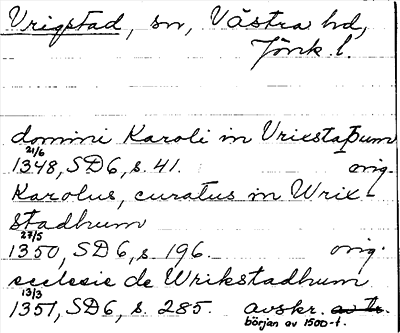 Vrigstad, sn, Västra hd,
Jönk. l.
domini Karoli in Vrixstaþum
21/6
1348, SD6, s. 41. orig.
Karolus, curatus in Wrix-
stadhum
27/5
1350, SD6, s. 196. orig.
ecclesie de Wrikstadhum
13/3
1351, SD6, s. 285. avskr. av tr.
början av 1500-t.